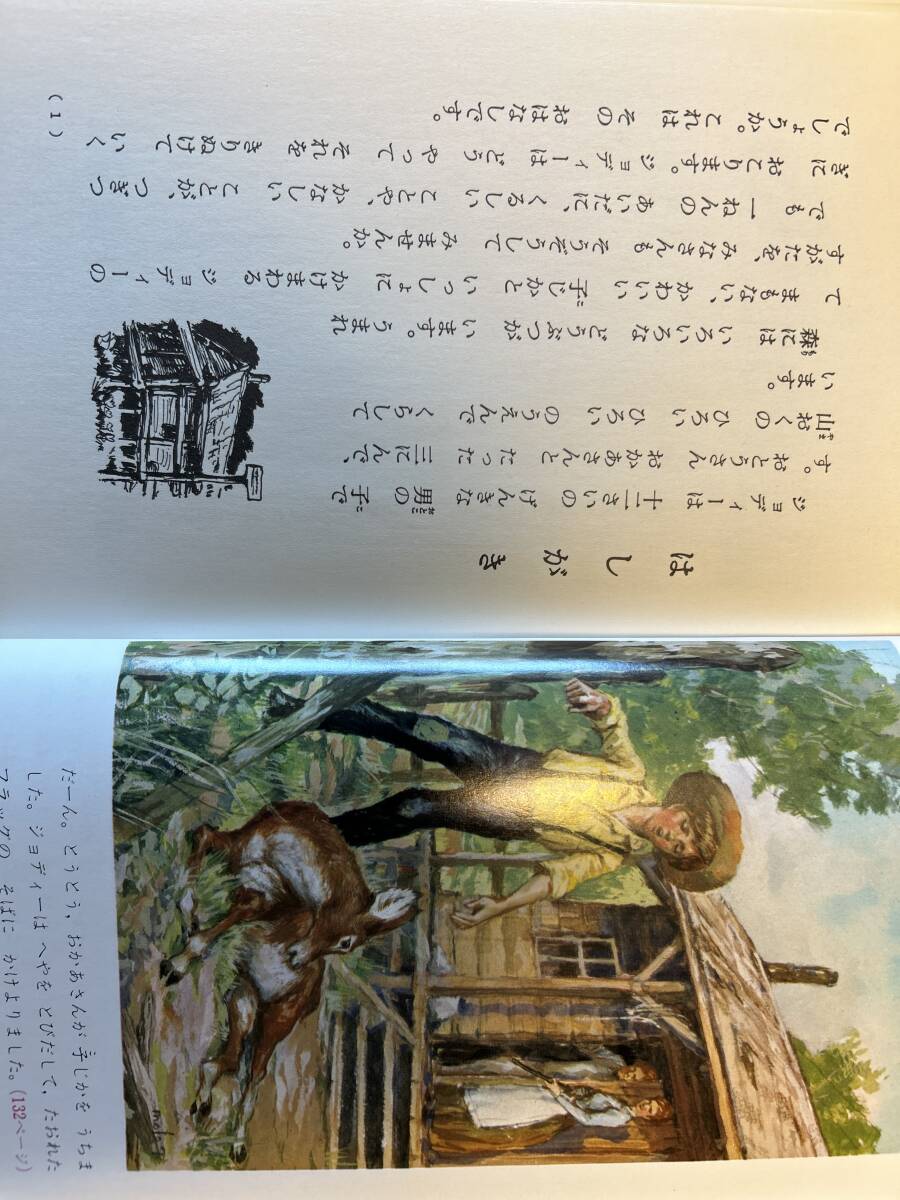 はしがき
ジョディーは 十二さいの げんきな 男の子で
す。おとうさん おかあさんと たった 三にんで、
山おくの ひろい ひろい のうえんで くらして
います。
森には いろいろな どうぶつが います。うまれ
て まもない、かわいい 子じかと いっしょに かけまわる ジョディーの
すがたを、みなさんも そうぞうして みませんか。
でも 一ねんの あいだに、くるしい ことや、かなしい ことが、つぎつ
ぎに おこります。ジョディーは どう やって それを きりぬけて いく
でしょうか。これは その おはなしです。
(1)
だーん。とうとう,おかあさんが 子じかを うちま
した。ジョディーは へやを とびだして,たおれた
フラッグの そばに かけよりました。(132ページ)